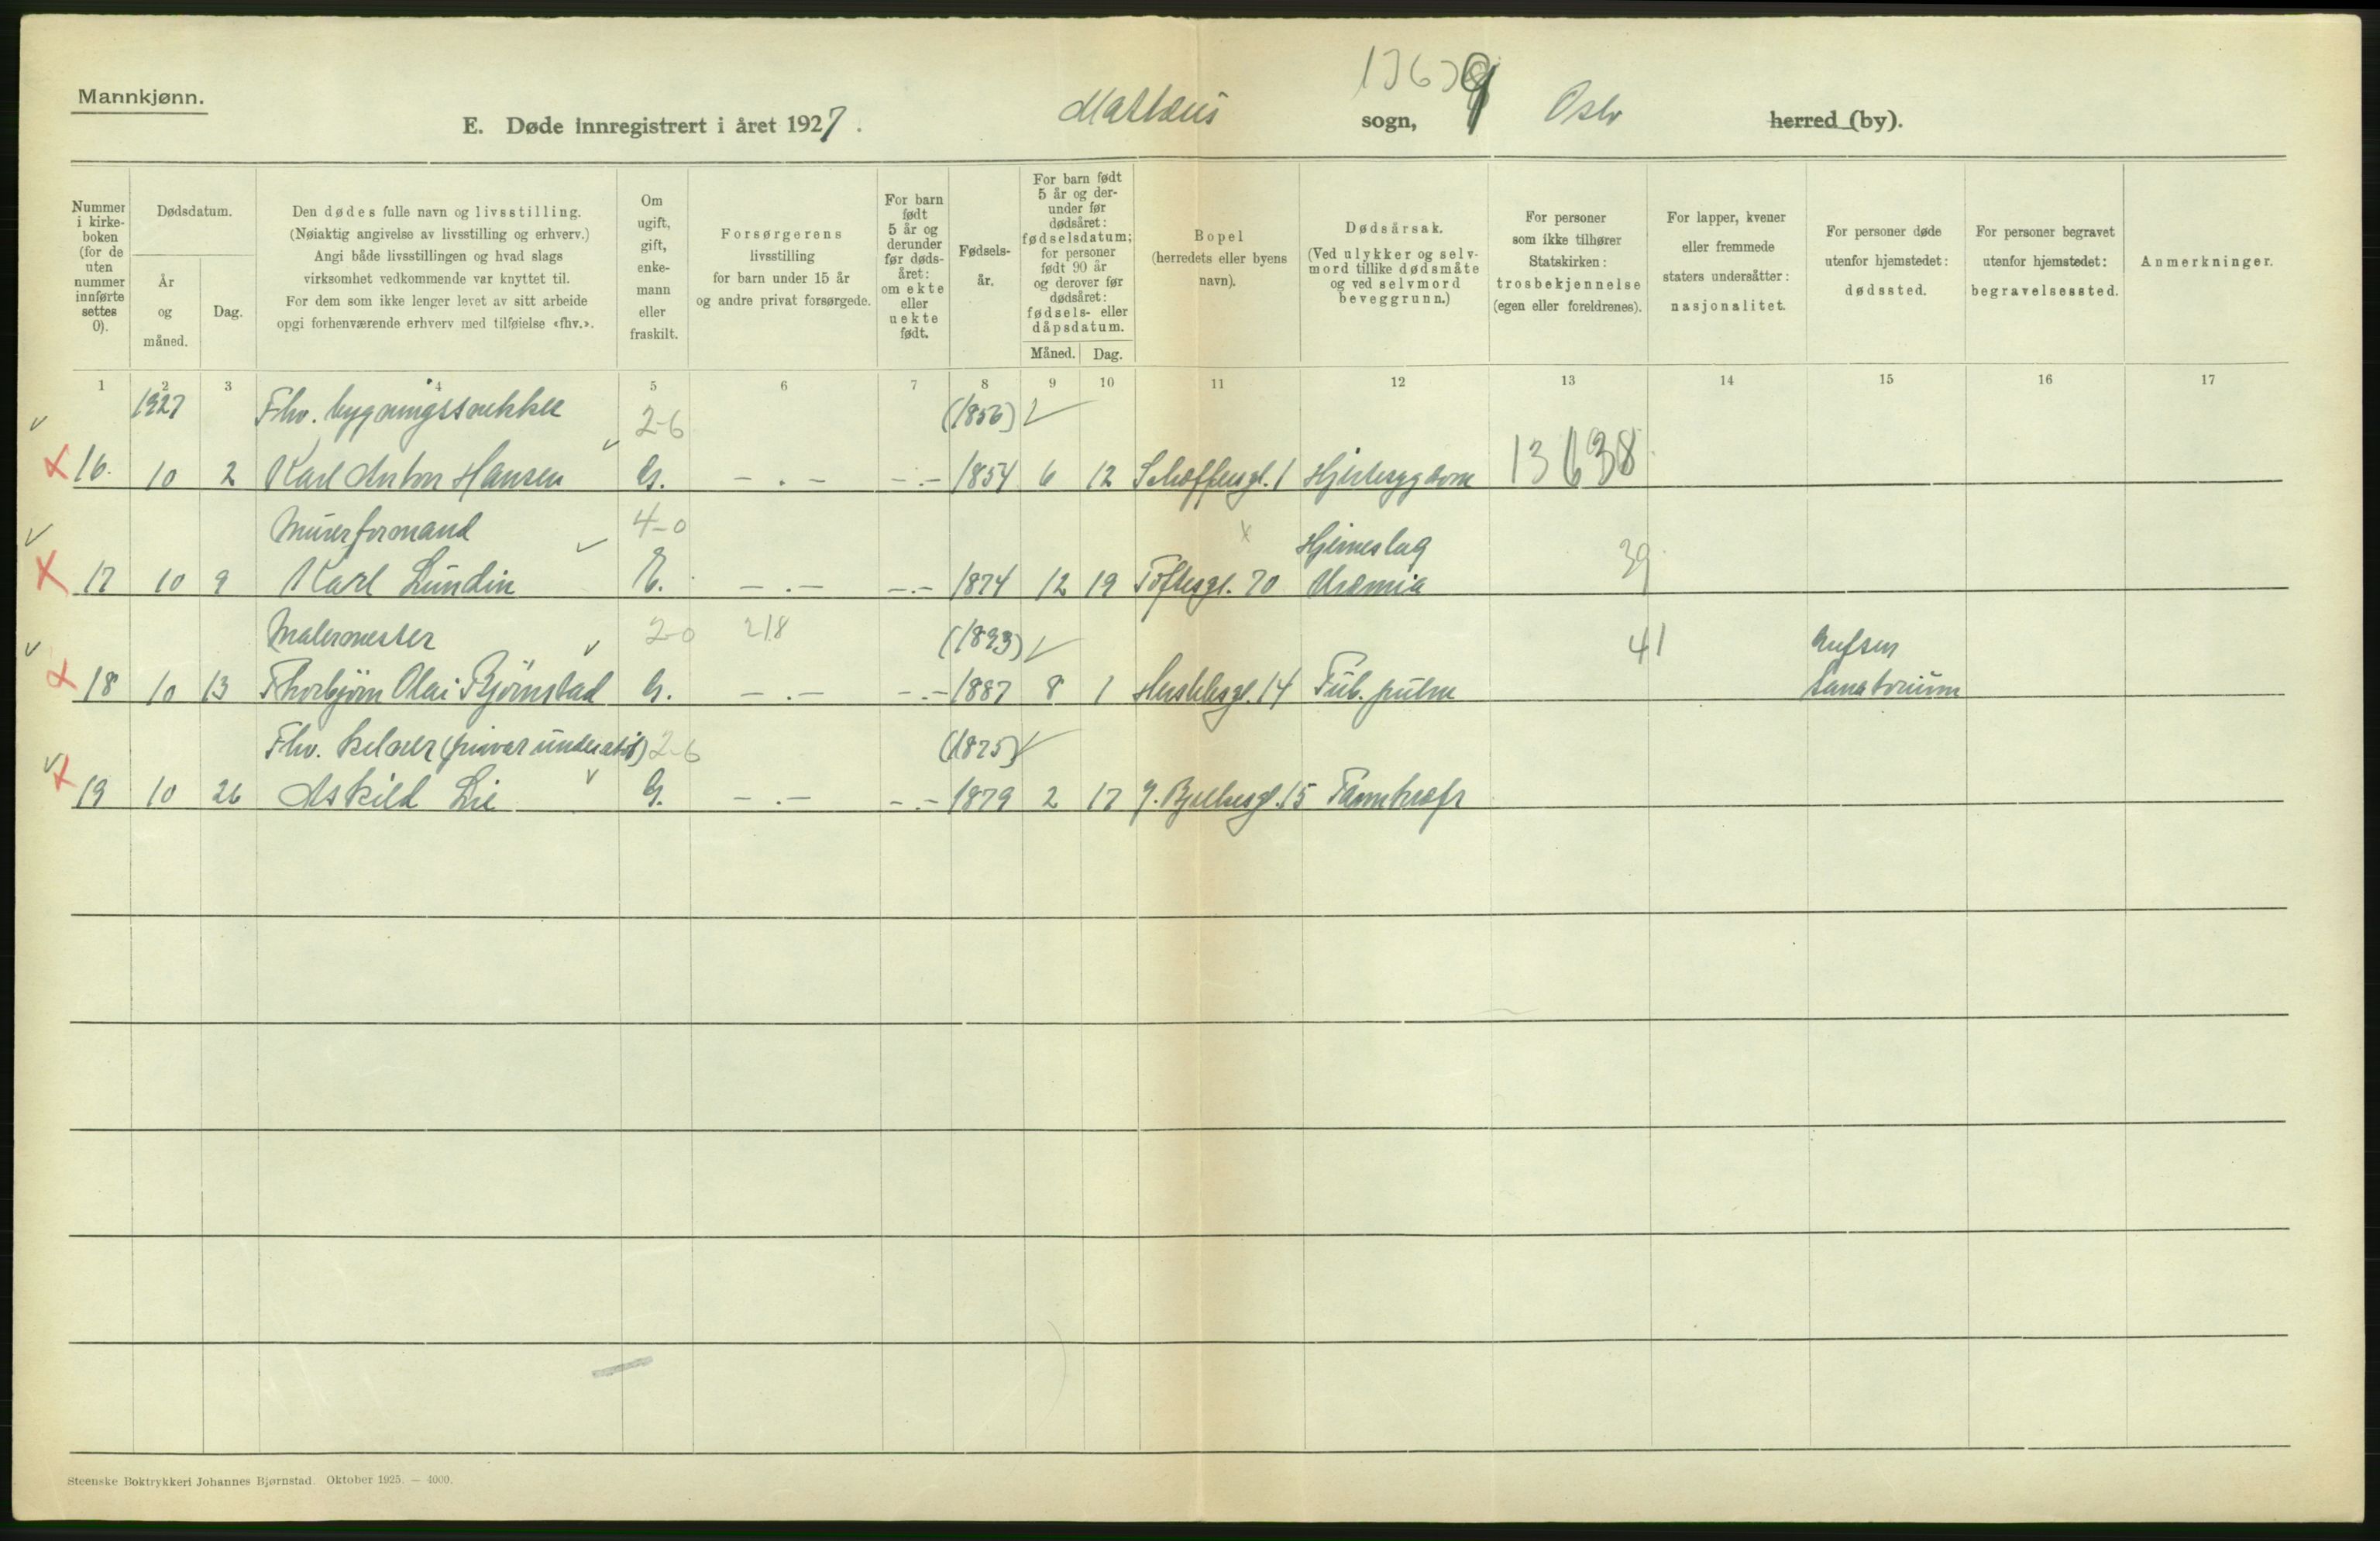 Mannkjønn.
E. Døde innregistrert i året 1927.
Mattæus sogn, Oslo herred (by).
Nummer i kirkeboken (for de uten nummer innførte settes 0).
Dødsdatum.
År og måned.
Dag.
Den dødes fulle navn og livsstilling.
(Nøiaktig angivelse av livsstilling og erhverv.)
Angi både livsstillingen og hvad slags
virksomhet vedkommende var knyttet til.
For dem som ikke lenger levet av sitt arbeide
opgi forhenværende erhverv med tilføielse «fhv.».
Om ugift, gift, enkemann eller fraskilt.
Forsørgerens
livsstilling
for barn under 15 år
og andre privat forsørgede.
For barn født 5 år og derunder før dødsåret: om ekte eller uekte født.
Fødselsår.
For barn født 5 år og derunder før dødsåret: fødselsdatum; for personer født 90 år og derover før dødsåret: fødsels- eller dåpsdatum.
Måned. Dag.
Bopel
(herredets eller byens
navn).
Dødsårsak.
(Ved ulykker og selv-
mord tillike dødsmåte
og ved selvmord
beveggrunn.)
For personer
som ikke tilhører
Statskirken:
trosbekjennelse
(egen eller foreldrenes).
For lapper, kvener
eller fremmede
staters undersåtter:
nasjonalitet.
For personer døde
utenfor hjemstedet:
dødssted.
For personer begravet
utenfor hjemstedet:
begravelsessted.
Anmerkninger.
1 2 3 4 5 6 7 8 9 10 11 12 13 14 15 16 17
1927 Fhv. bygningssnekker 2-6 (1856)
16. 10 2 Karl Anton Hansen G. - . - - . - 1854 6 12 1 Hjertesygdom 13638
Murerformand 4-0 Hjerneslag 39
17 10 9 Karl Lundin E. - . - - . - 1874 12 19 Toftesgt. 70 Uræmia
Malermester 2-0 218 (1893) 41 Grefsen
18 10 13 Thorbjørn Olai Bjørnstad G. - . - - . - 1887 8 1 14 Tub. pulm Sanatorium
Fhv. kelner 2-6 (1875)
19 10 26 Askild Lie G. - . - - . - 1879 2 17 15
Steenske Boktrykkeri Johannes Bjørnstad. Oktober 1925. — 4000.